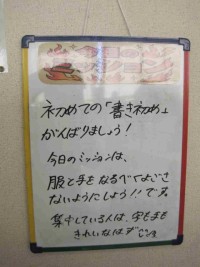 初めての「書き初め」
がんばりましょう！
今日のミッションは、
服と手をなるべくよごさ
ないようにしよう！！です
集中している人は、字も手も
きれいなはず